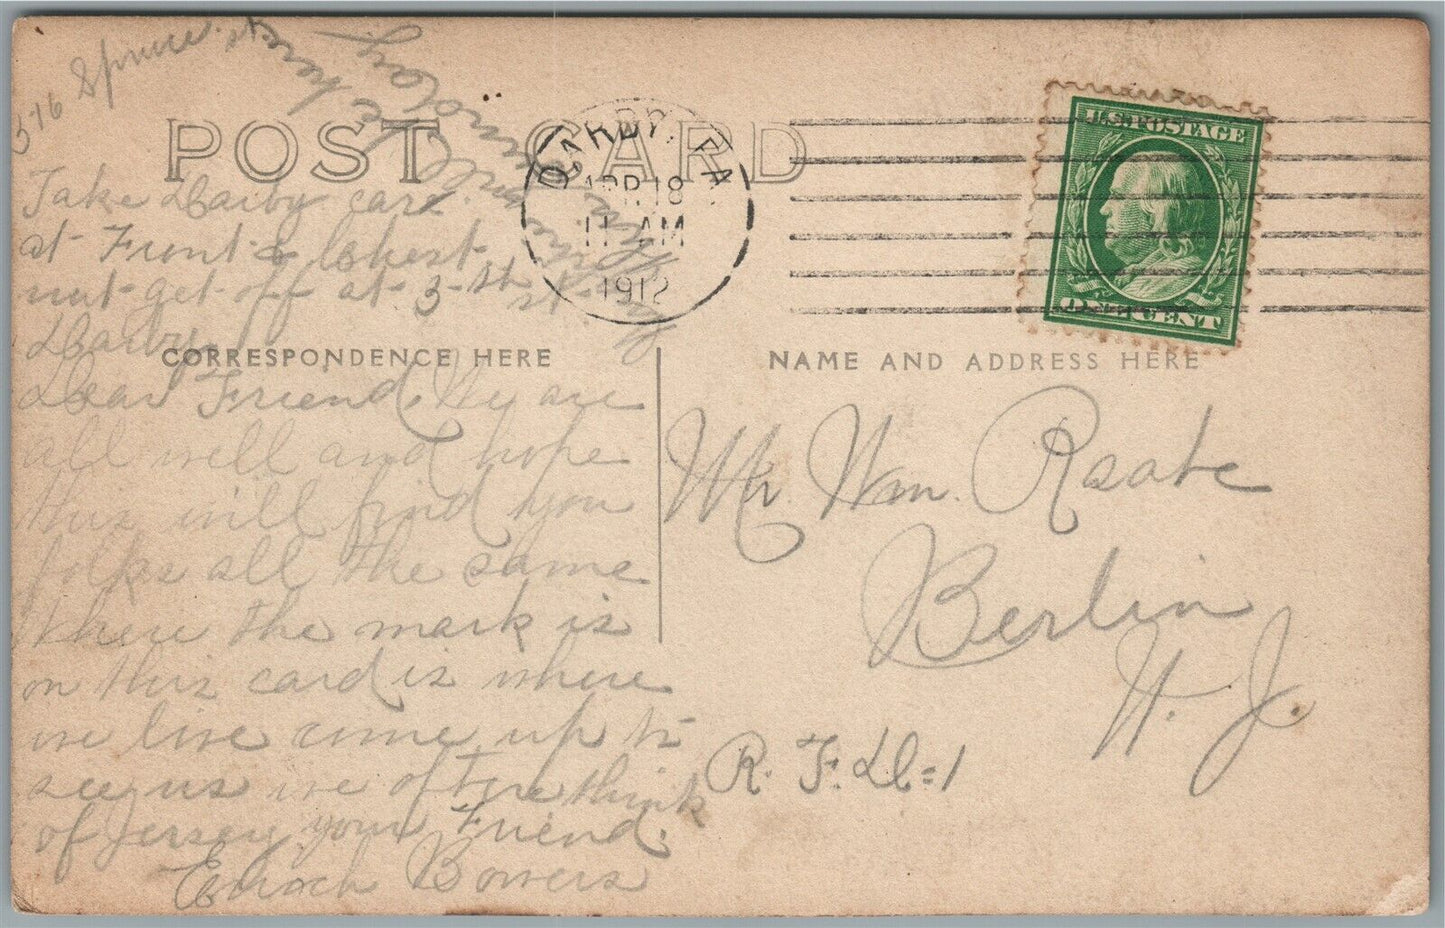 316 Spruce st
POST CARD
DARBY, PA.
APR 18
11 AM
1912
U.S. POSTAGE
ONE CENT
Take Darby car
at Front & Chest
nut get off at 3 st st
Darby
CORRESPONDENCE HERE
NAME AND ADDRESS HERE
Dear Friend, Wy are
all well and hope
this will find you
folks all the same
where the mark is
on this card is where
we live come up to
see us we oftere think
of Jersey your Friend.
Enoch Bowers
Mr Wm.
Berlin
N. J.
R. F. D=1